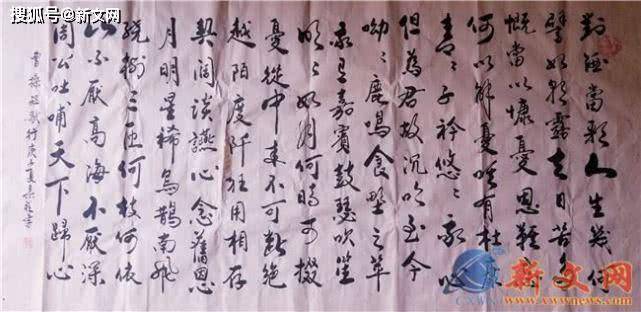 搜狐号@新文网
對酒當歌人生幾何
譬如朝露去日苦多
慨當以慷憂思難忘
何以解憂唯有杜康
青〻子衿悠〻我心
但為君故沉吟至今
呦〻鹿鳴食野之草
我有嘉賓鼓瑟吹笙
明〻如月何時可掇
憂從中來不可斷絕
越陌度阡枉用相存
契闊談讌心念舊恩
月明星稀烏鵲南飛
繞樹三匝何枝何依
山不厭高海不厭深
周公吐哺天下歸心
曹操短歌行庚子夏
新文网